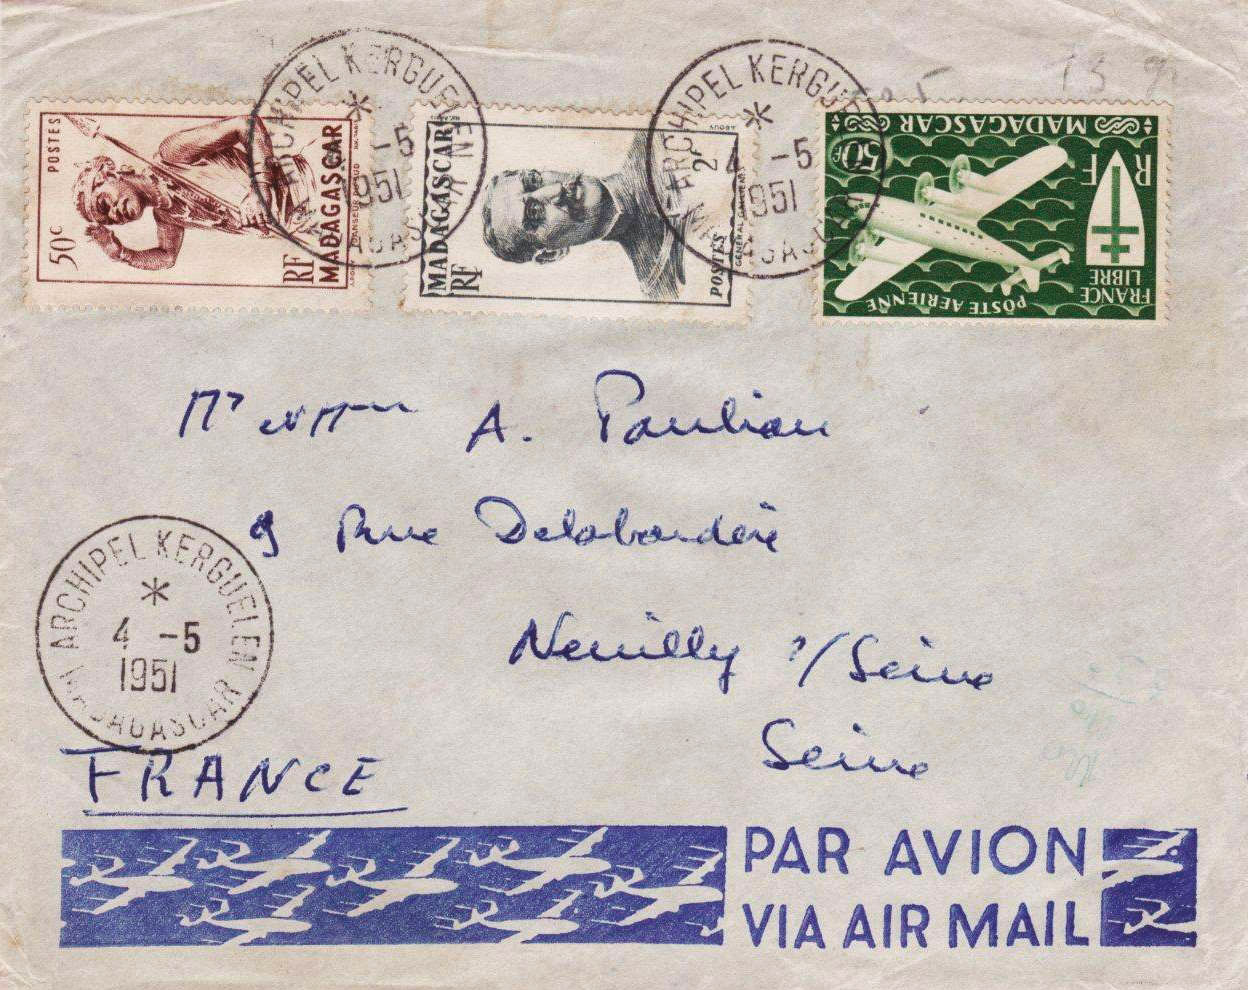 ARCHIPEL KERGUELEN
*
-5
1951
MADAGASCAR
ARCHIPEL KERGUELEN
*
4 -5
1951
MADAGASCAR
POSTES
50c
RF
MADAGASCAR
MADAGASCAR
RF
POSTES
2F
MADAGASCAR
50F
RF
FRANCE
LIBRE
POSTE AERIENNE
13 gr
Mr et Mme A. Paulian
9 Rue Delabordère
Neuilly s/Seine
Seine
ARCHIPEL KERGUELEN
*
4 -5
1951
MADAGASCAR
FRANCE
PAR AVION
VIA AIR MAIL